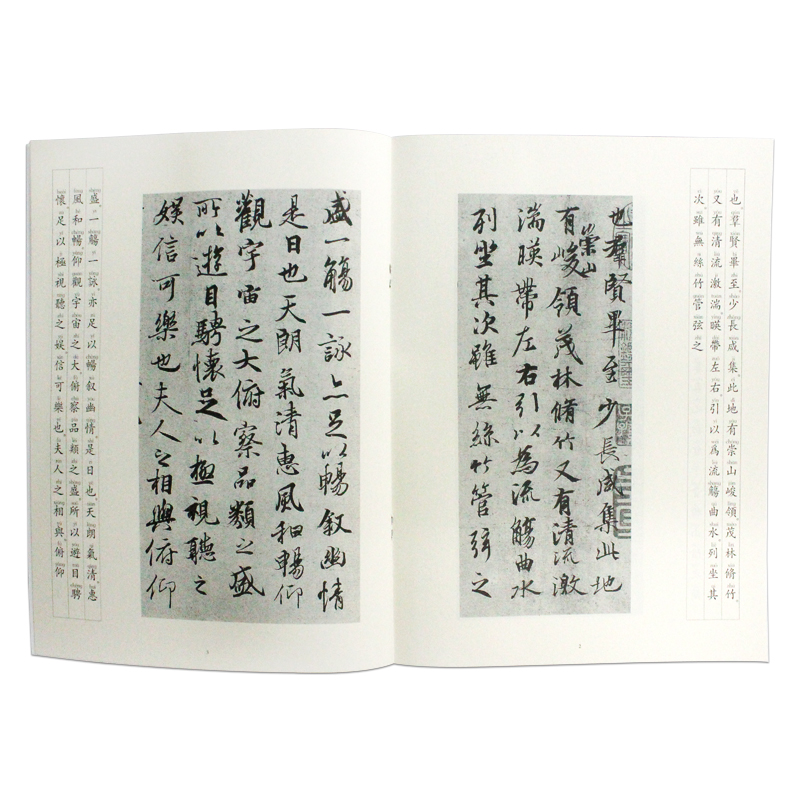 也羣賢畢至少長咸集此地有崇山峻領茂林脩竹
又有清流激湍暎帶左右引以為流觴曲水列坐其
次雖無絲竹管弦之
也羣賢畢至少長咸集此地
崇山
有峻領茂林脩竹又有清流激
湍暎帶左右引以為流觴曲水
列坐其次雖無絲竹管弦之
2
盛一觴一詠亦足以暢叙幽情
是日也天朗氣清惠風和暢仰
觀宇宙之大俯察品類之盛
所以遊目騁懷足以極視聽之
娛信可樂也夫人之相與俯仰
盛一觴一詠亦足以暢叙幽情是日也天朗氣清惠
風和暢仰觀宇宙之大俯察品類之盛所以遊目騁
懷足以極視聽之娛信可樂也夫人之相與俯仰
3